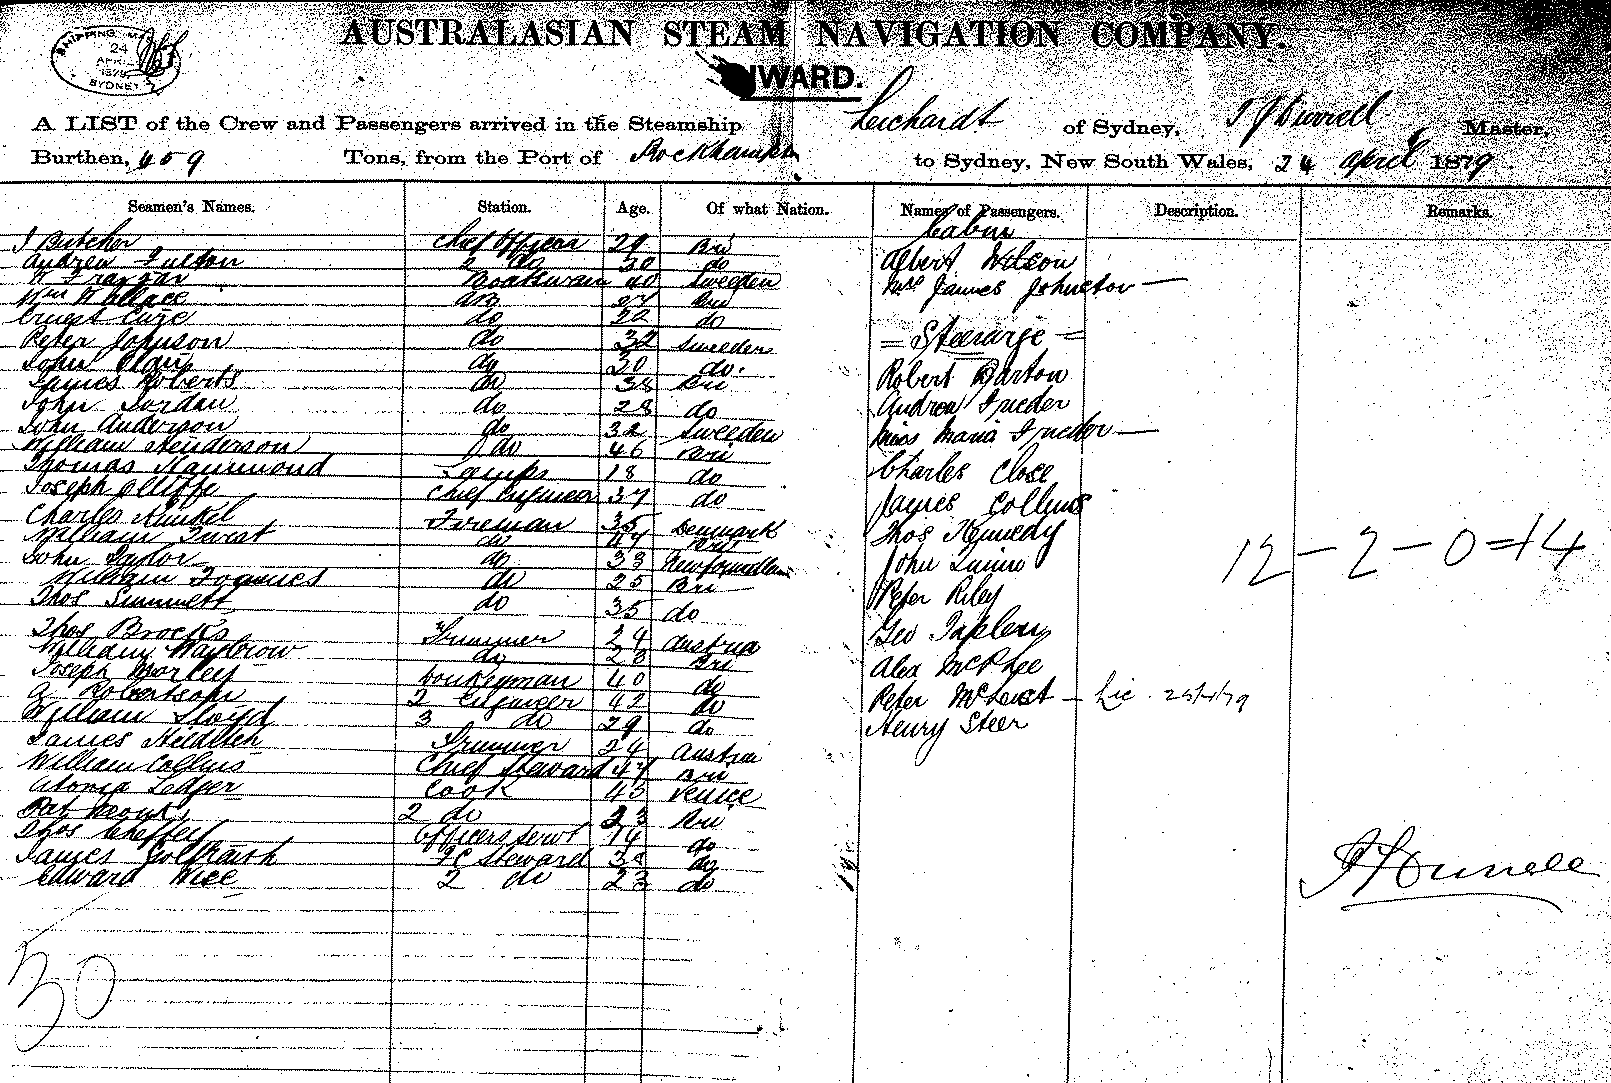 AUSTRALASIAN STEAM NAVIGATION COMPANY.
SHIPPING
24
1879
SYDNEY
INWARD.
A LIST of the Crew and Passengers arrived in the Steamship Leichardt of Sydney, Master,
Burthen, 459 Tons, from the Port of Rockhampton to Sydney, New South Wales, 24 April 1879
Seamen's Names. Station. Age. Of what Nation. Names of Passengers. Description. Remarks.
J Butcher Chief Officer 29 Bri
Andrew Fulton 2 do 30 do
Boatswain 40 Sweden
Wm Wallace AB 27 Bri
Ernest do 22 do
Peter Johnson do 32 Sweden
John do 30 do.
James Roberts do 38 Bri
John Jordan do 28 do
John Anderson do 32 Sweden
William Henderson do 46 Bri
Thomas Hammond Lamps 18 do
Joseph Olliffe Chief Engineer 37 do
Charles Hunkel Fireman 35 Denmark
William do 47 Bri
John Taylor do 33 Newfoundland
William do 25 Bri
Thos do 35 do
Thos Brocks Trimmer 24 Austria
William do 23 Bri
Joseph Morley Donkeyman 40 do
A Robertson 2 Engineer 42 do
William Lloyd 3 do 29 do
James Trimmer 24 Austria
William Collins Chief Steward 47 Bri
Ledger Cook 43 Venice
Pat 2 do 23 Bri
Thos Officers Servt 14 do
James F C Steward 38 do
Edward 2 do 23 do
30
Cabin
Albert Wilson
Mrs James Johnston
= Steerage =
Robert Barton
Andrew
Miss Maria
Charles Close
James Collins
Thos Kennedy
John Quinn
Peter Riley
Geo
Alex McPhee
Peter - Lic.
Henry Steer
12 - 2 - 0 = 14